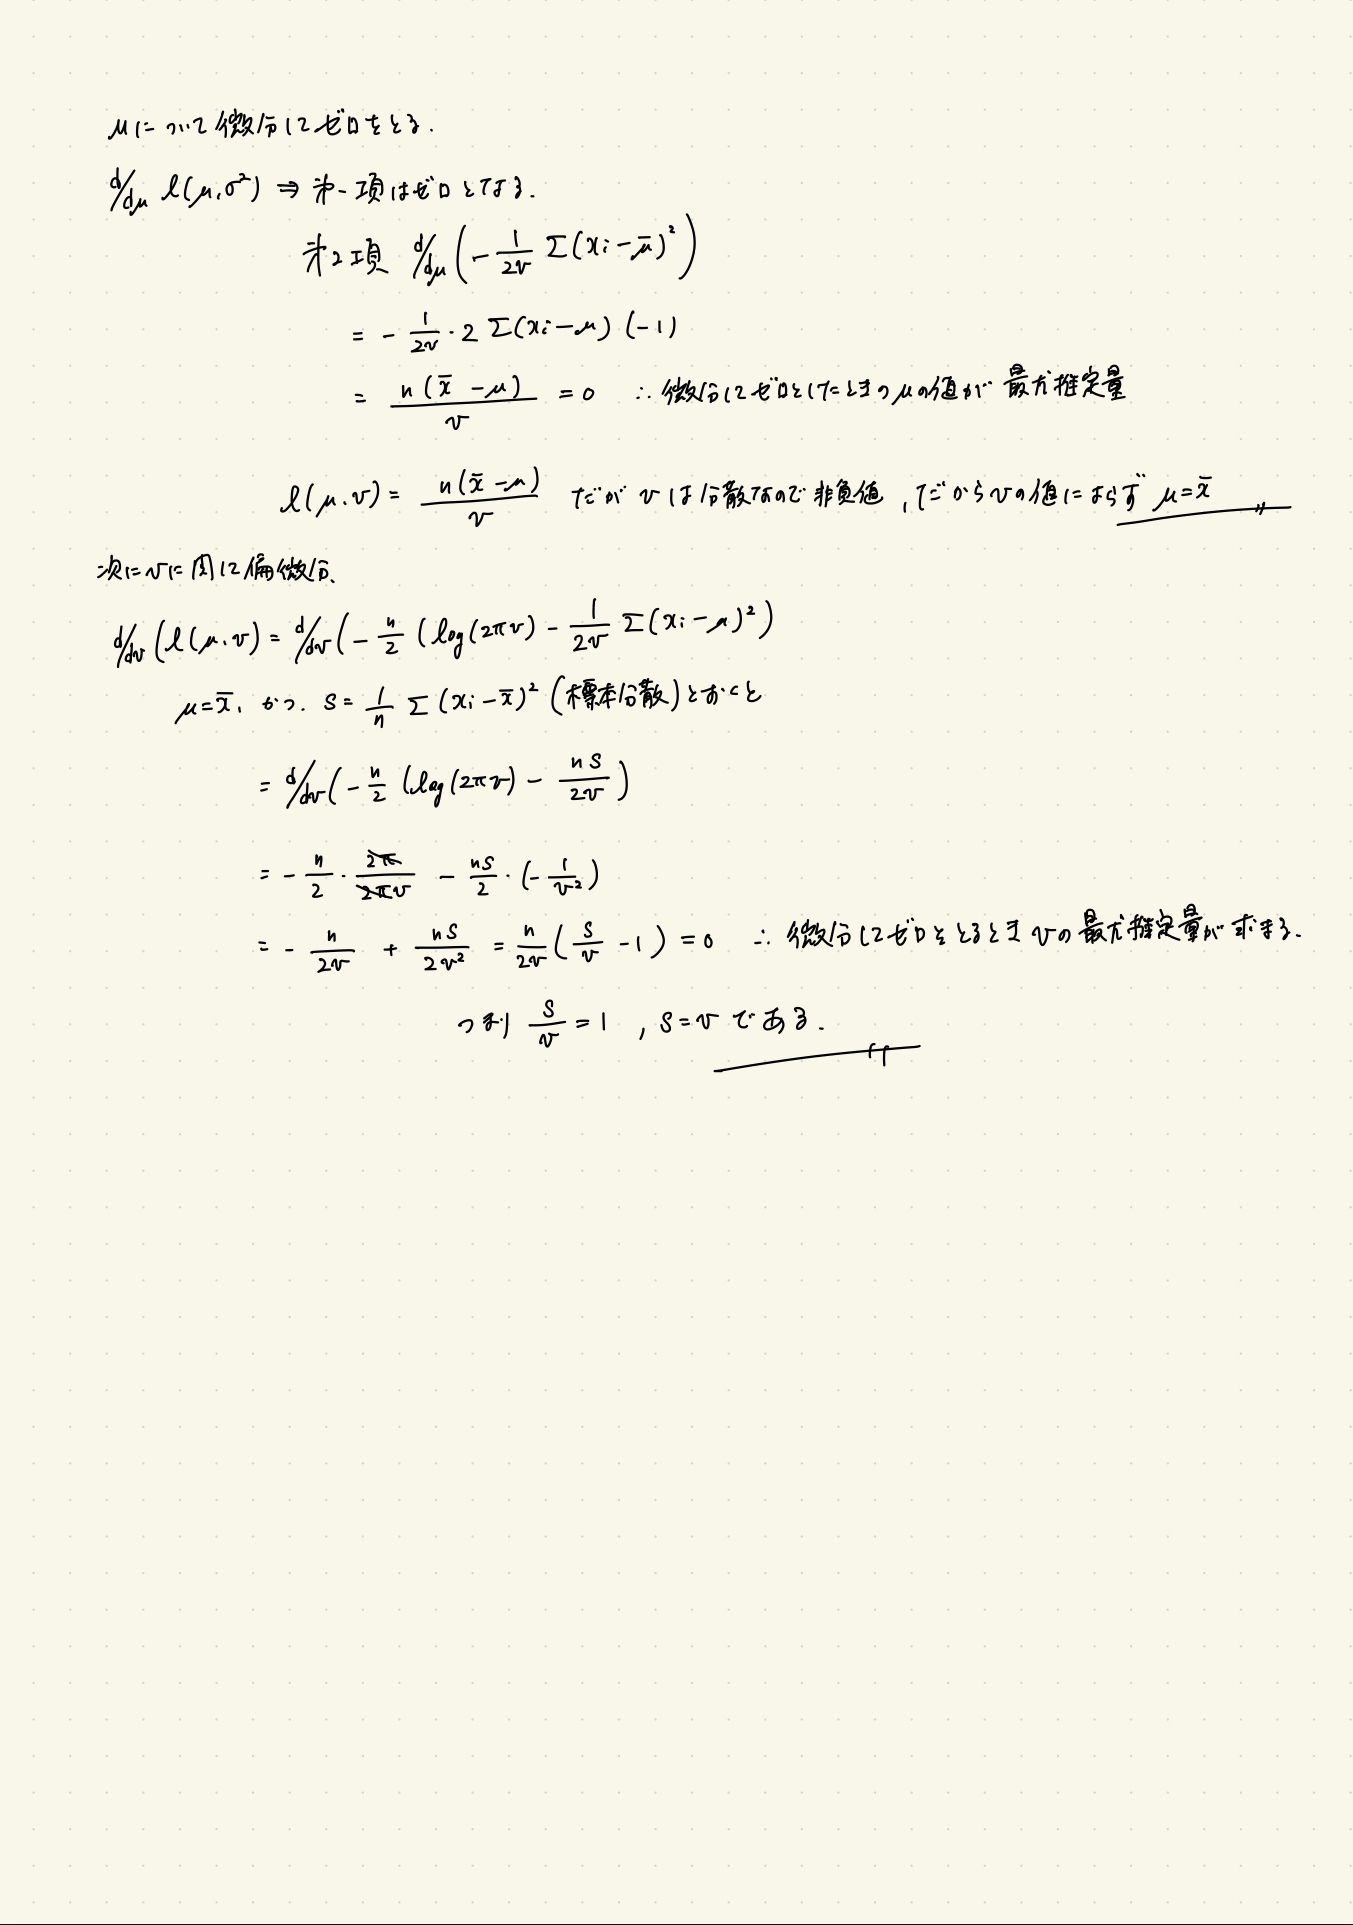 μについて微分してゼロをとる.
d/dμ l(μ,σ²) ⇒ 第一項はゼロとなる.
第2項 d/dμ(-1/2v Σ(xi-μ̄)²)
= -1/2v · 2 Σ(xi-μ) (-1)
= n(x̄-μ)/v = 0 ∴ 微分してゼロとしたときのμの値が最尤推定量
l(μ.v) = n(x̄-μ)/v だが vは分散なので非負値, だからvの値によらず μ=x̄
次にvに関して偏微分.
d/dv(l(μ.v) = d/dv(-n/2 (log(2πv) - 1/2v Σ(xi-μ)²)
μ=x̄, かつ. S=1/n Σ(xi-x̄)² (標本分散)とおくと
= d/dv(-n/2 (log(2πv) - nS/2v)
= -n/2 · 2π/2πv - nS/2 · (-1/v²)
= -n/2v + nS/2v² = n/2v (S/v - 1) = 0 ∴ 微分してゼロをとるときvの最尤推定量が求まる.
つまり S/v = 1 , S=v である.